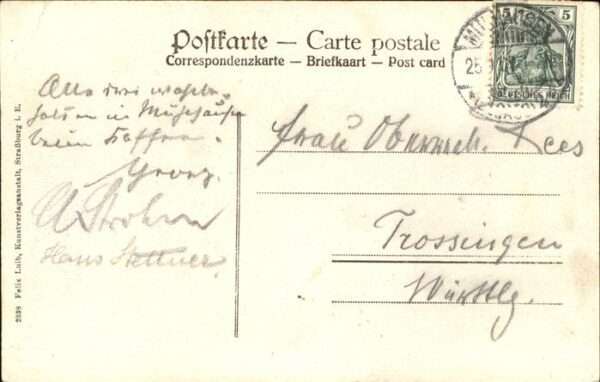 Postkarte — Carte postale
Correspondenzkarte — Briefkaart — Post card
5 5
MÜLHAUSEN
25
DEUTSCHES REICH
Alle drei
in Mülhausen
beim Kaffee.
Georg.
A. Strohm
Hans Stettner.
Frau Oberreal. Lees
Trossingen
Württbg.
2898 Felix Luib, Kunstverlagsanstalt, Straßburg i. E.